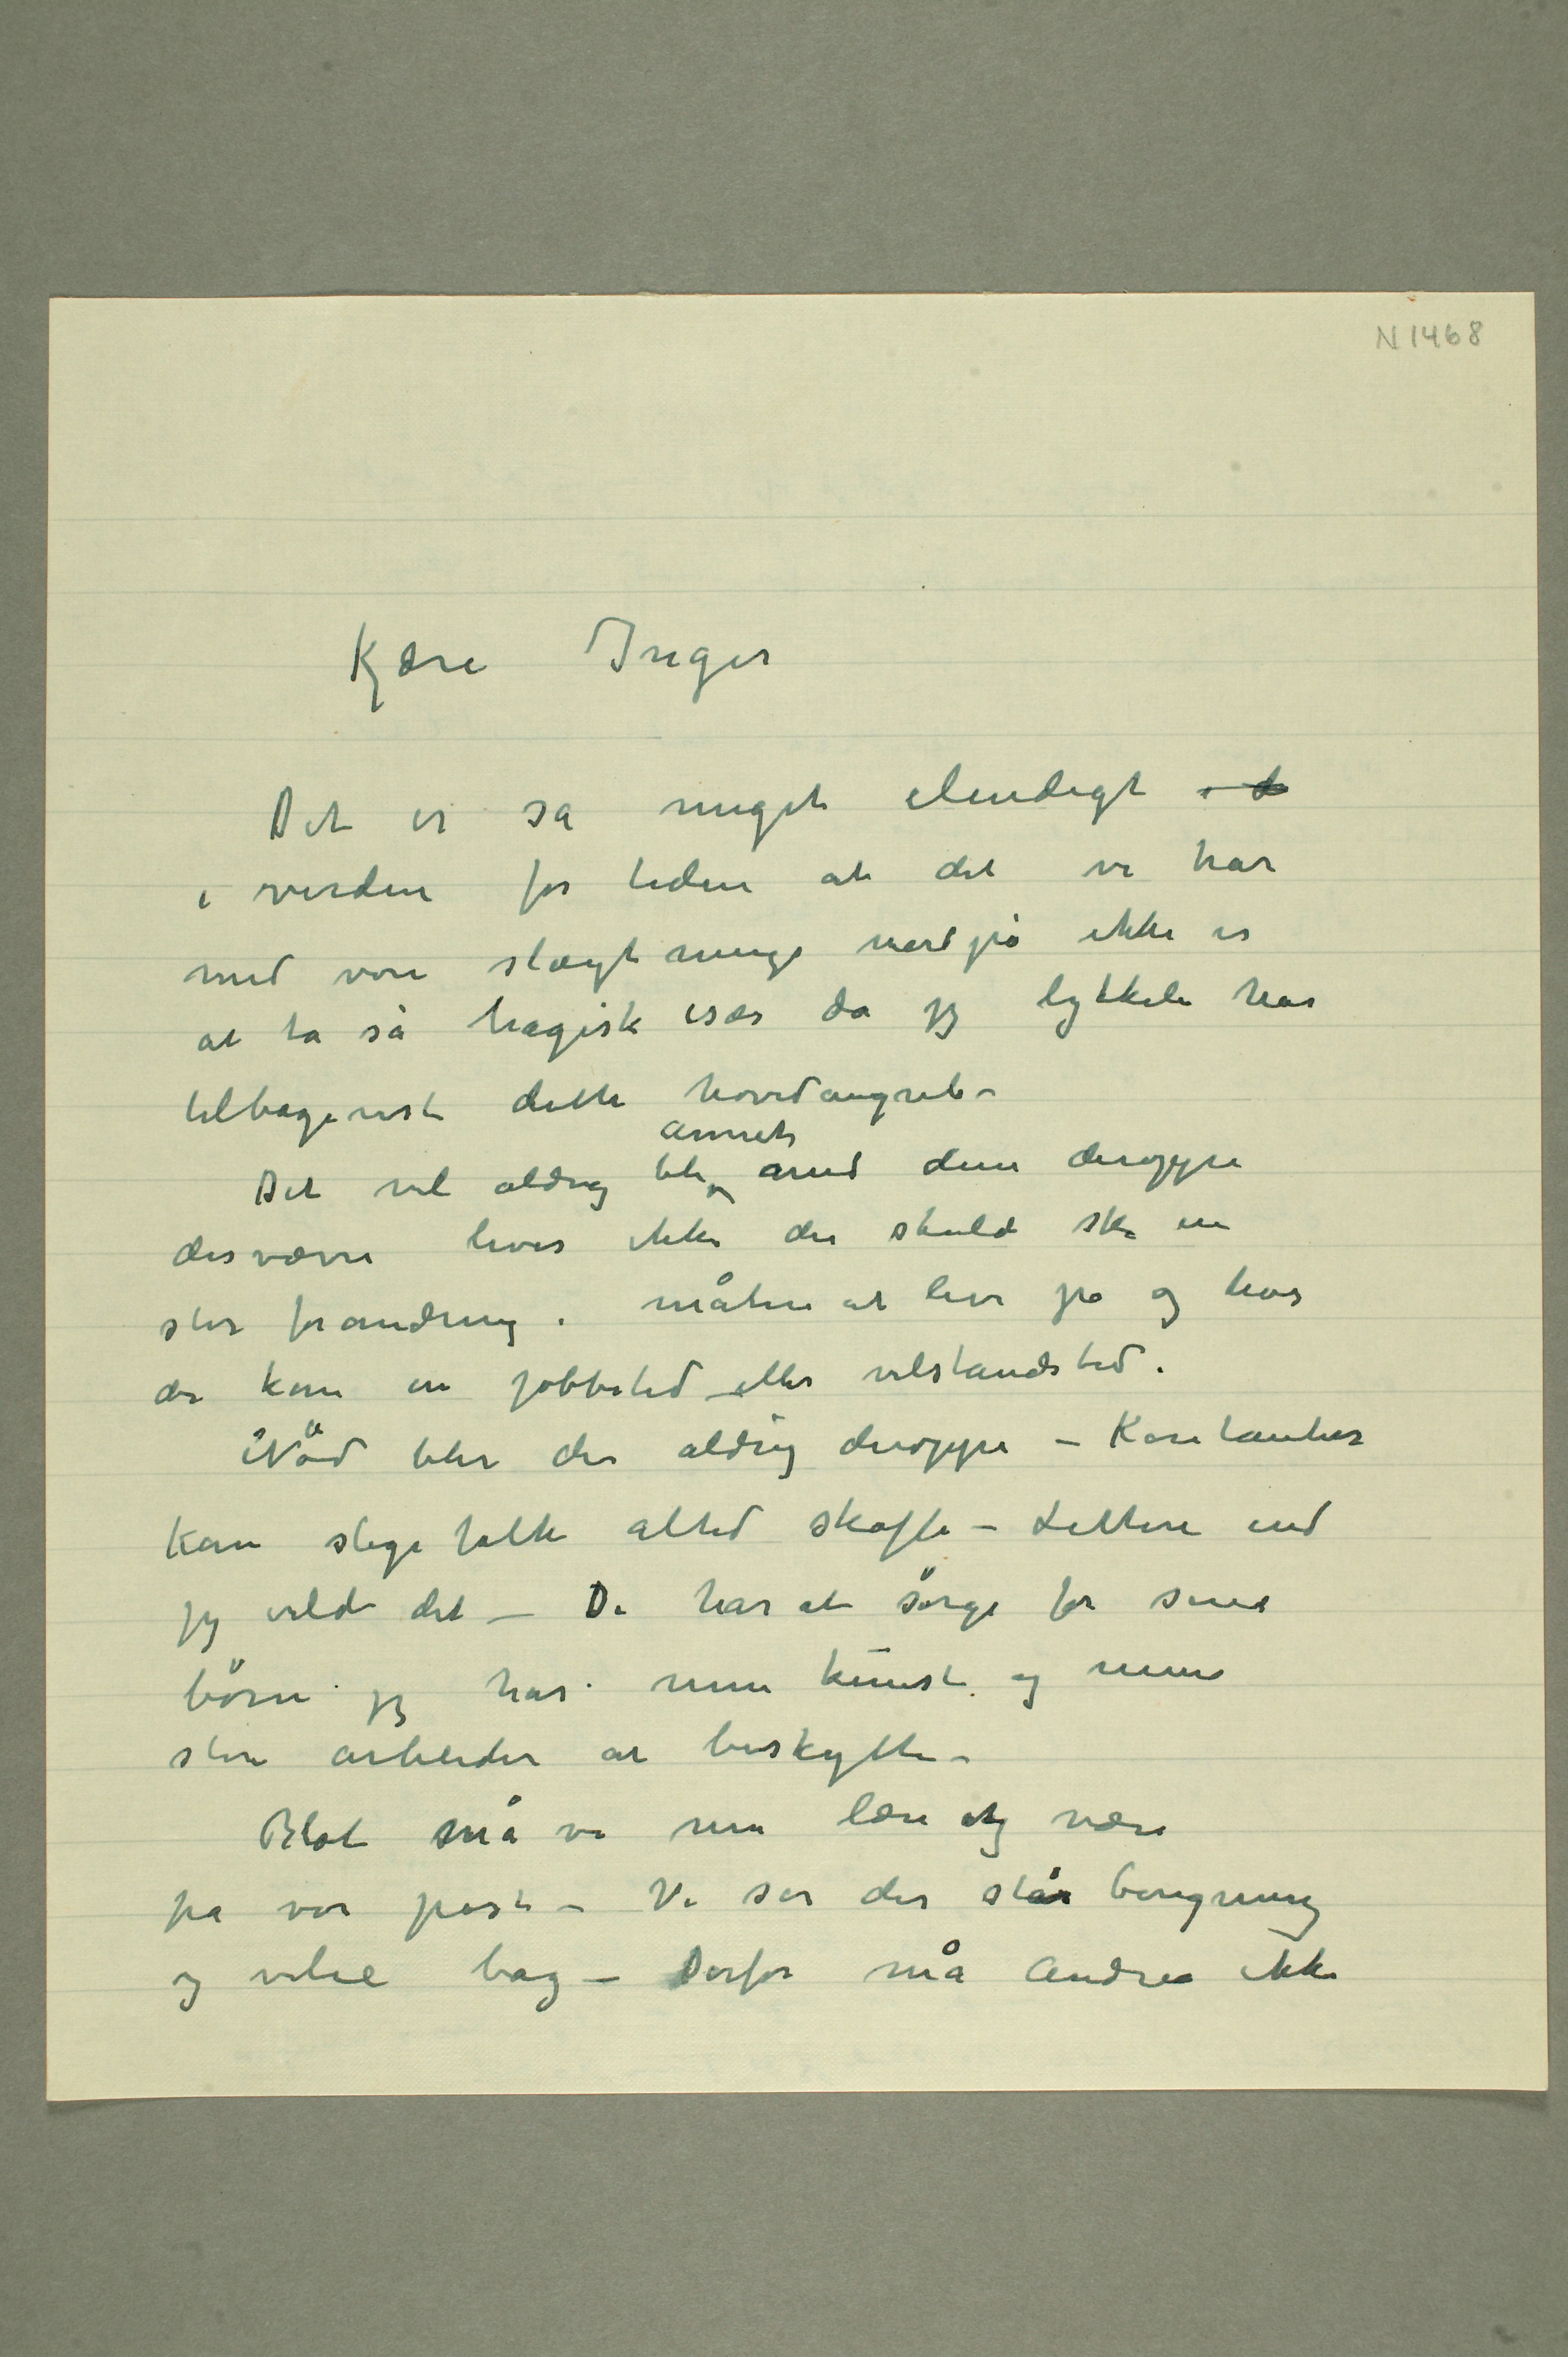 N 1468
Kjære Inger
Det er så meget elendigt i d
i verden for tiden at det vi har
med vore slægtninge nordpå ikke er
at ta så tragisk især da jeg lykkeli har
tilbagevist dette hovedangreb –
annet
Det vil aldrig bli med dem deroppe
desværre hvis ikke der skulde ske en
stor forandring i måten at leve på og hvis
der kom en jobbetid eller velstandstid.
Nöd blir der aldrig deroppe – Kontanter
kan slige folk altid skaffe – Lettere end
jeg vilde det – De har at sörge for sine
börn jeg har min kunst og mine
store arbeider at beskytte –
Blot må vi nu lære at være
på vor post – Vi ser der står beregning
og vilje bag – Derfor må Andrea ikke